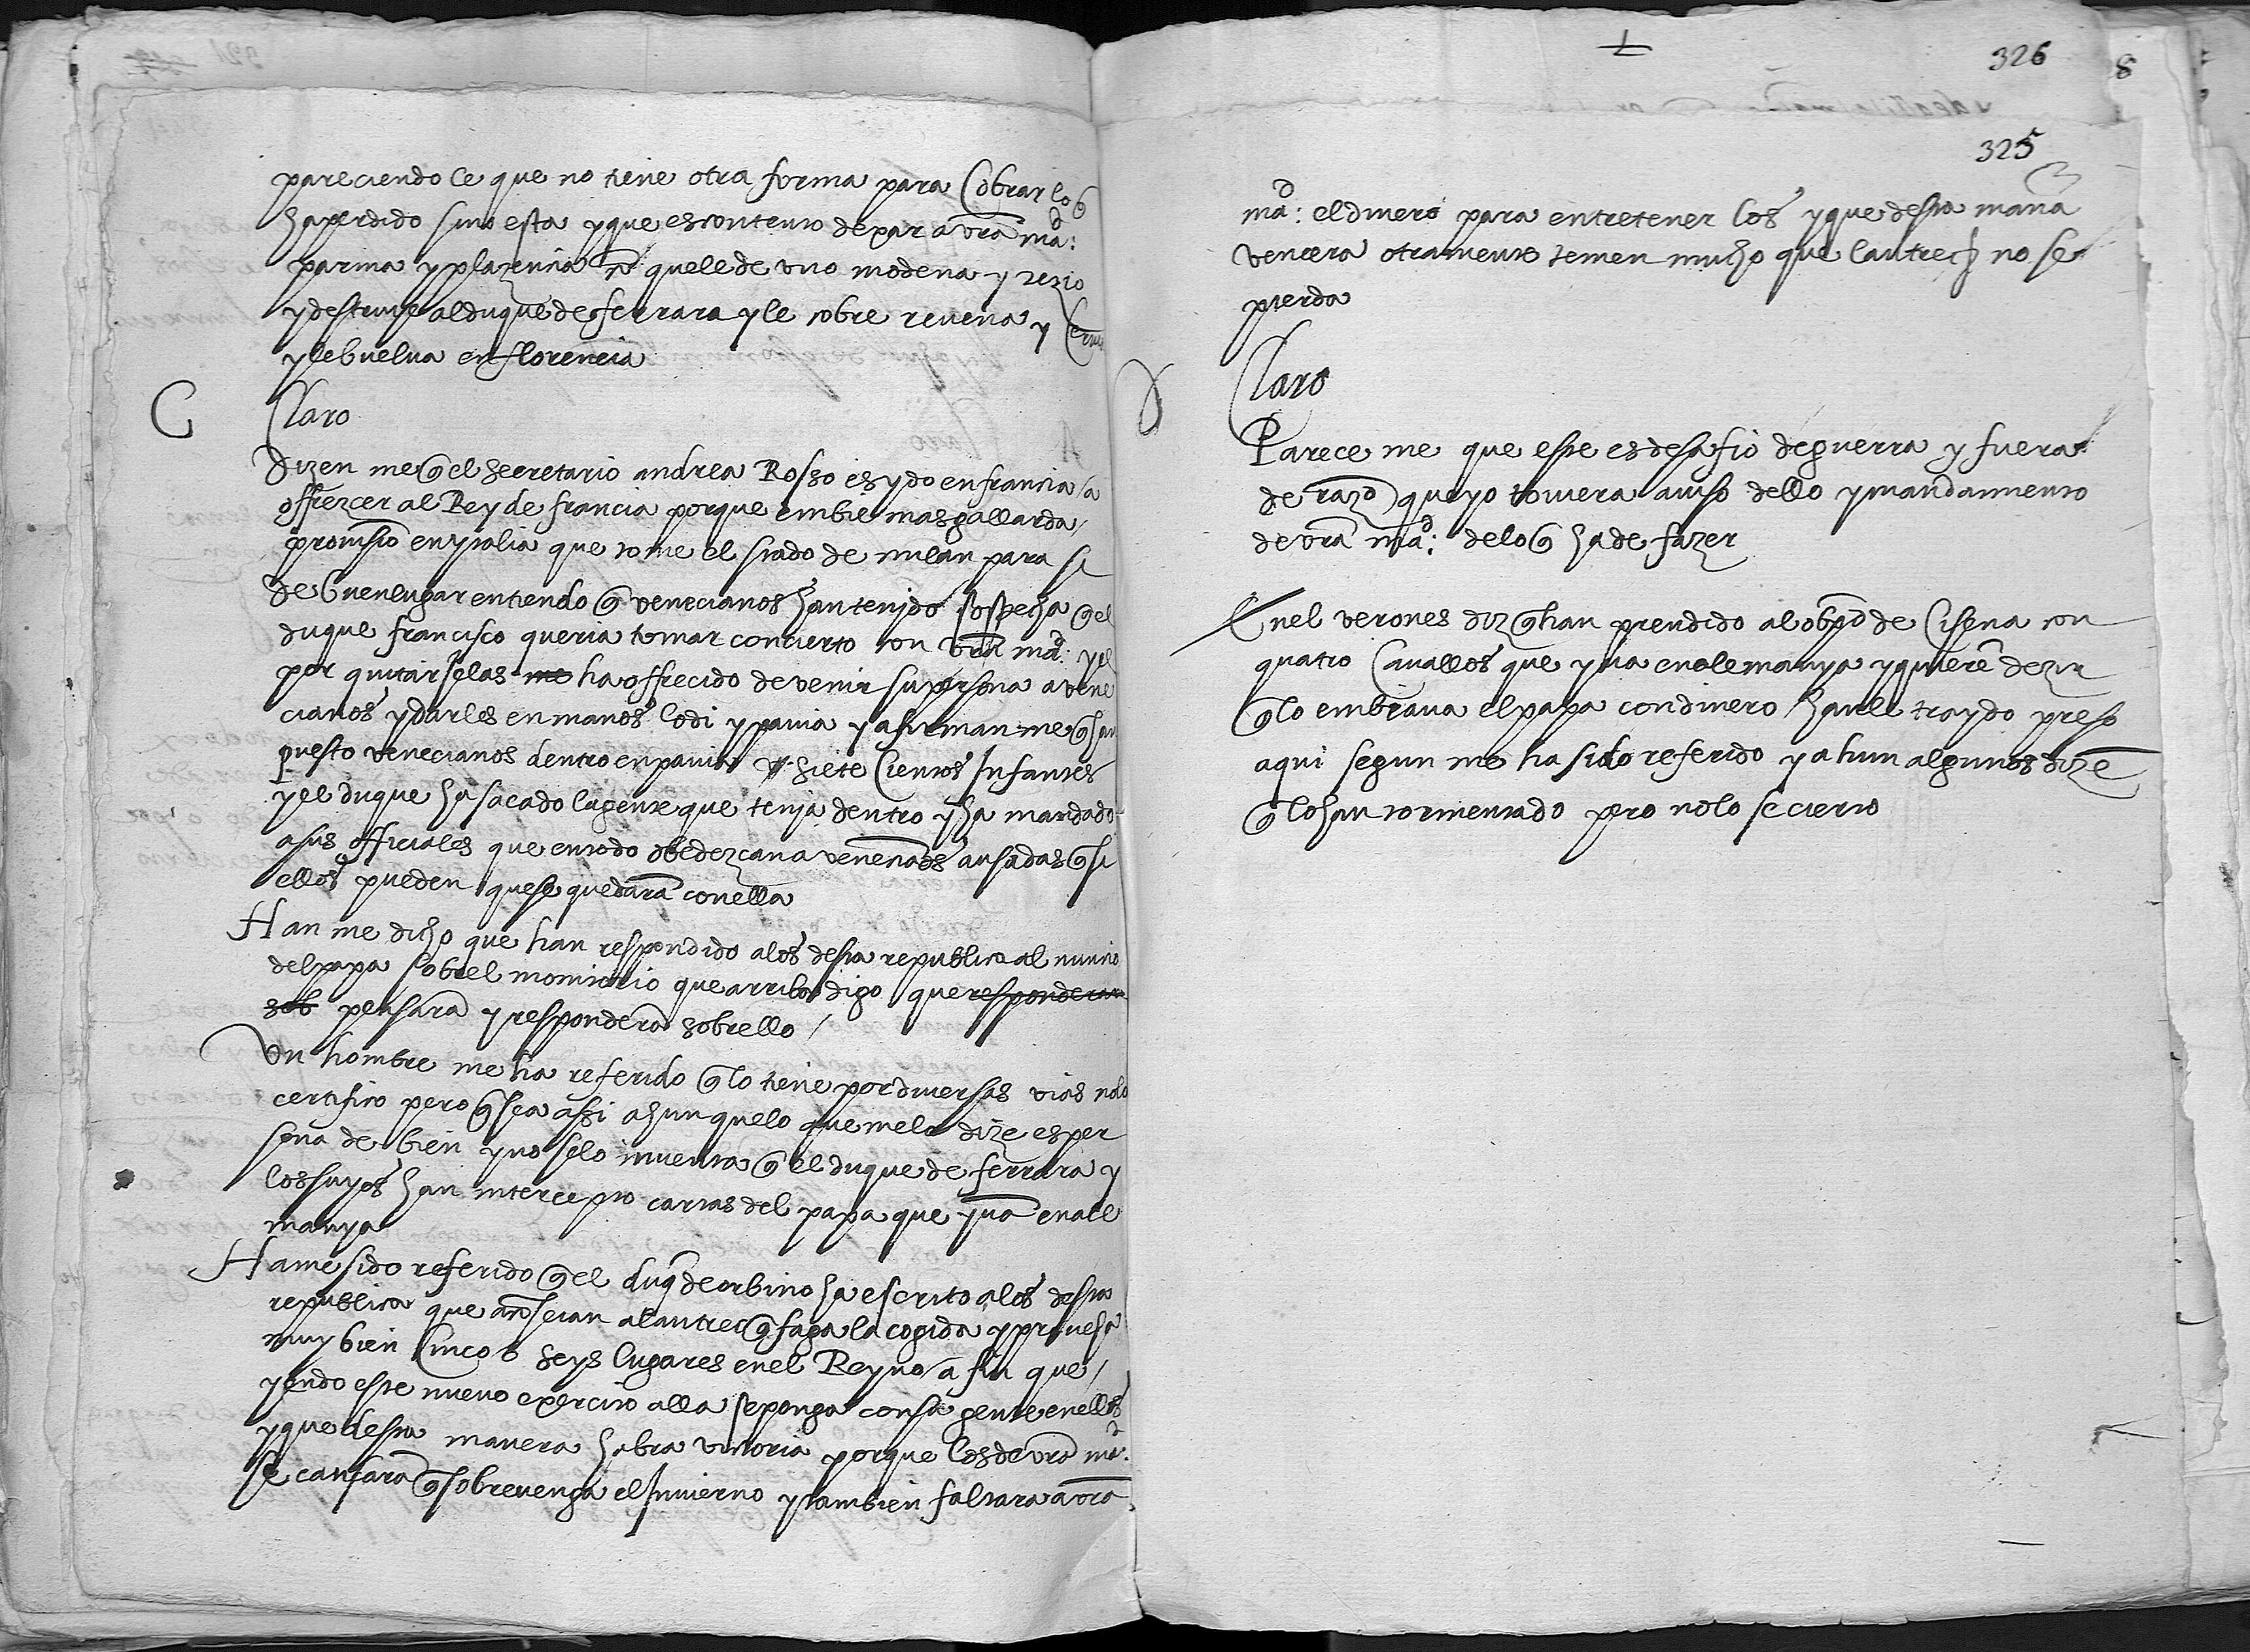 pareciendo le que no tiene otra forma para Cobrar lo q
ha perdido sino esta y que es contento dexar a vrã mad:
parma y plazenҫia cõ que le de vrã modena y rezo
y destruye al duque de ferrara y le cobre revena y Cervia
y le buelva en florencia
C Claro
Dizen me q el secretario andrea Rosso es ydo en francia a
offrezcer al Rey de francia porque embie mas gallarda
provisiõ en ytalia que tome el stado de milan para si
de buen lugar entiendo q venecianos han tenido sospecha q el
duque francisco queria tomar concierto con vrã mad: y el
por quitarselas me ha offrecido de venir su persona a vene
cianos y darles en manos lodi y pavia y afirman me q han
puesto venecianos dentro en pavia siete Cientos Infantes
y el duque ha sacado la gente que tenja dentro y ha mandado
a sus officiales que en todo obedezcan a venecianos ausadas q si
ellos pueden que se quedarã con ella
Han me dicho que han respondido a los desta republica al nuncio
del papa sobrel monitorio que arriba digo que responderan
sob pensarã y responderã sobrello
Un hombre me ha referido q lo tiene por diversas vias no lo
certifico pero q sea assi ahun quelo que me lo dize es per
sona de bien y no se lo inventa q el duque de ferrara y
los suyos han intercepto cartas del papa que yvã en ale
manya
Hame sido referido q el duq de orbino ha escrito a los desta
republica que acõsejan a lautrec q faga la cogida y provesa
muy bien Cinco o seys lugares en el Reyno a fin que
yendo este nuevo exercito alla se ponga con su gente en ellos
y que desta manera habra vitoria porque los de vrã mad.
se cansarã q sobrevenga el Invierno y tambien faltara a vrã
326
8
325
mad: el dinero para entretener los y que desta mañã
vencera otramente temen mucho que lautrech no se
pierda
Claro
Parece me que este es desafio de guerra y fuera
de razõ que yo toviera aviso dello y mandamiento
de vrã mad: de lo q ha de fazer
En el verones diz q han prendido al obpõ de Cisena con
quatro Cavallos que yva en alemanya y quierẽ dezir
q lo embiava el papa con dinero hanle traydo preso
aqui segun me ha sido referido y ahun algunos dizẽ
q lo han tormentado pero no lo se cierto